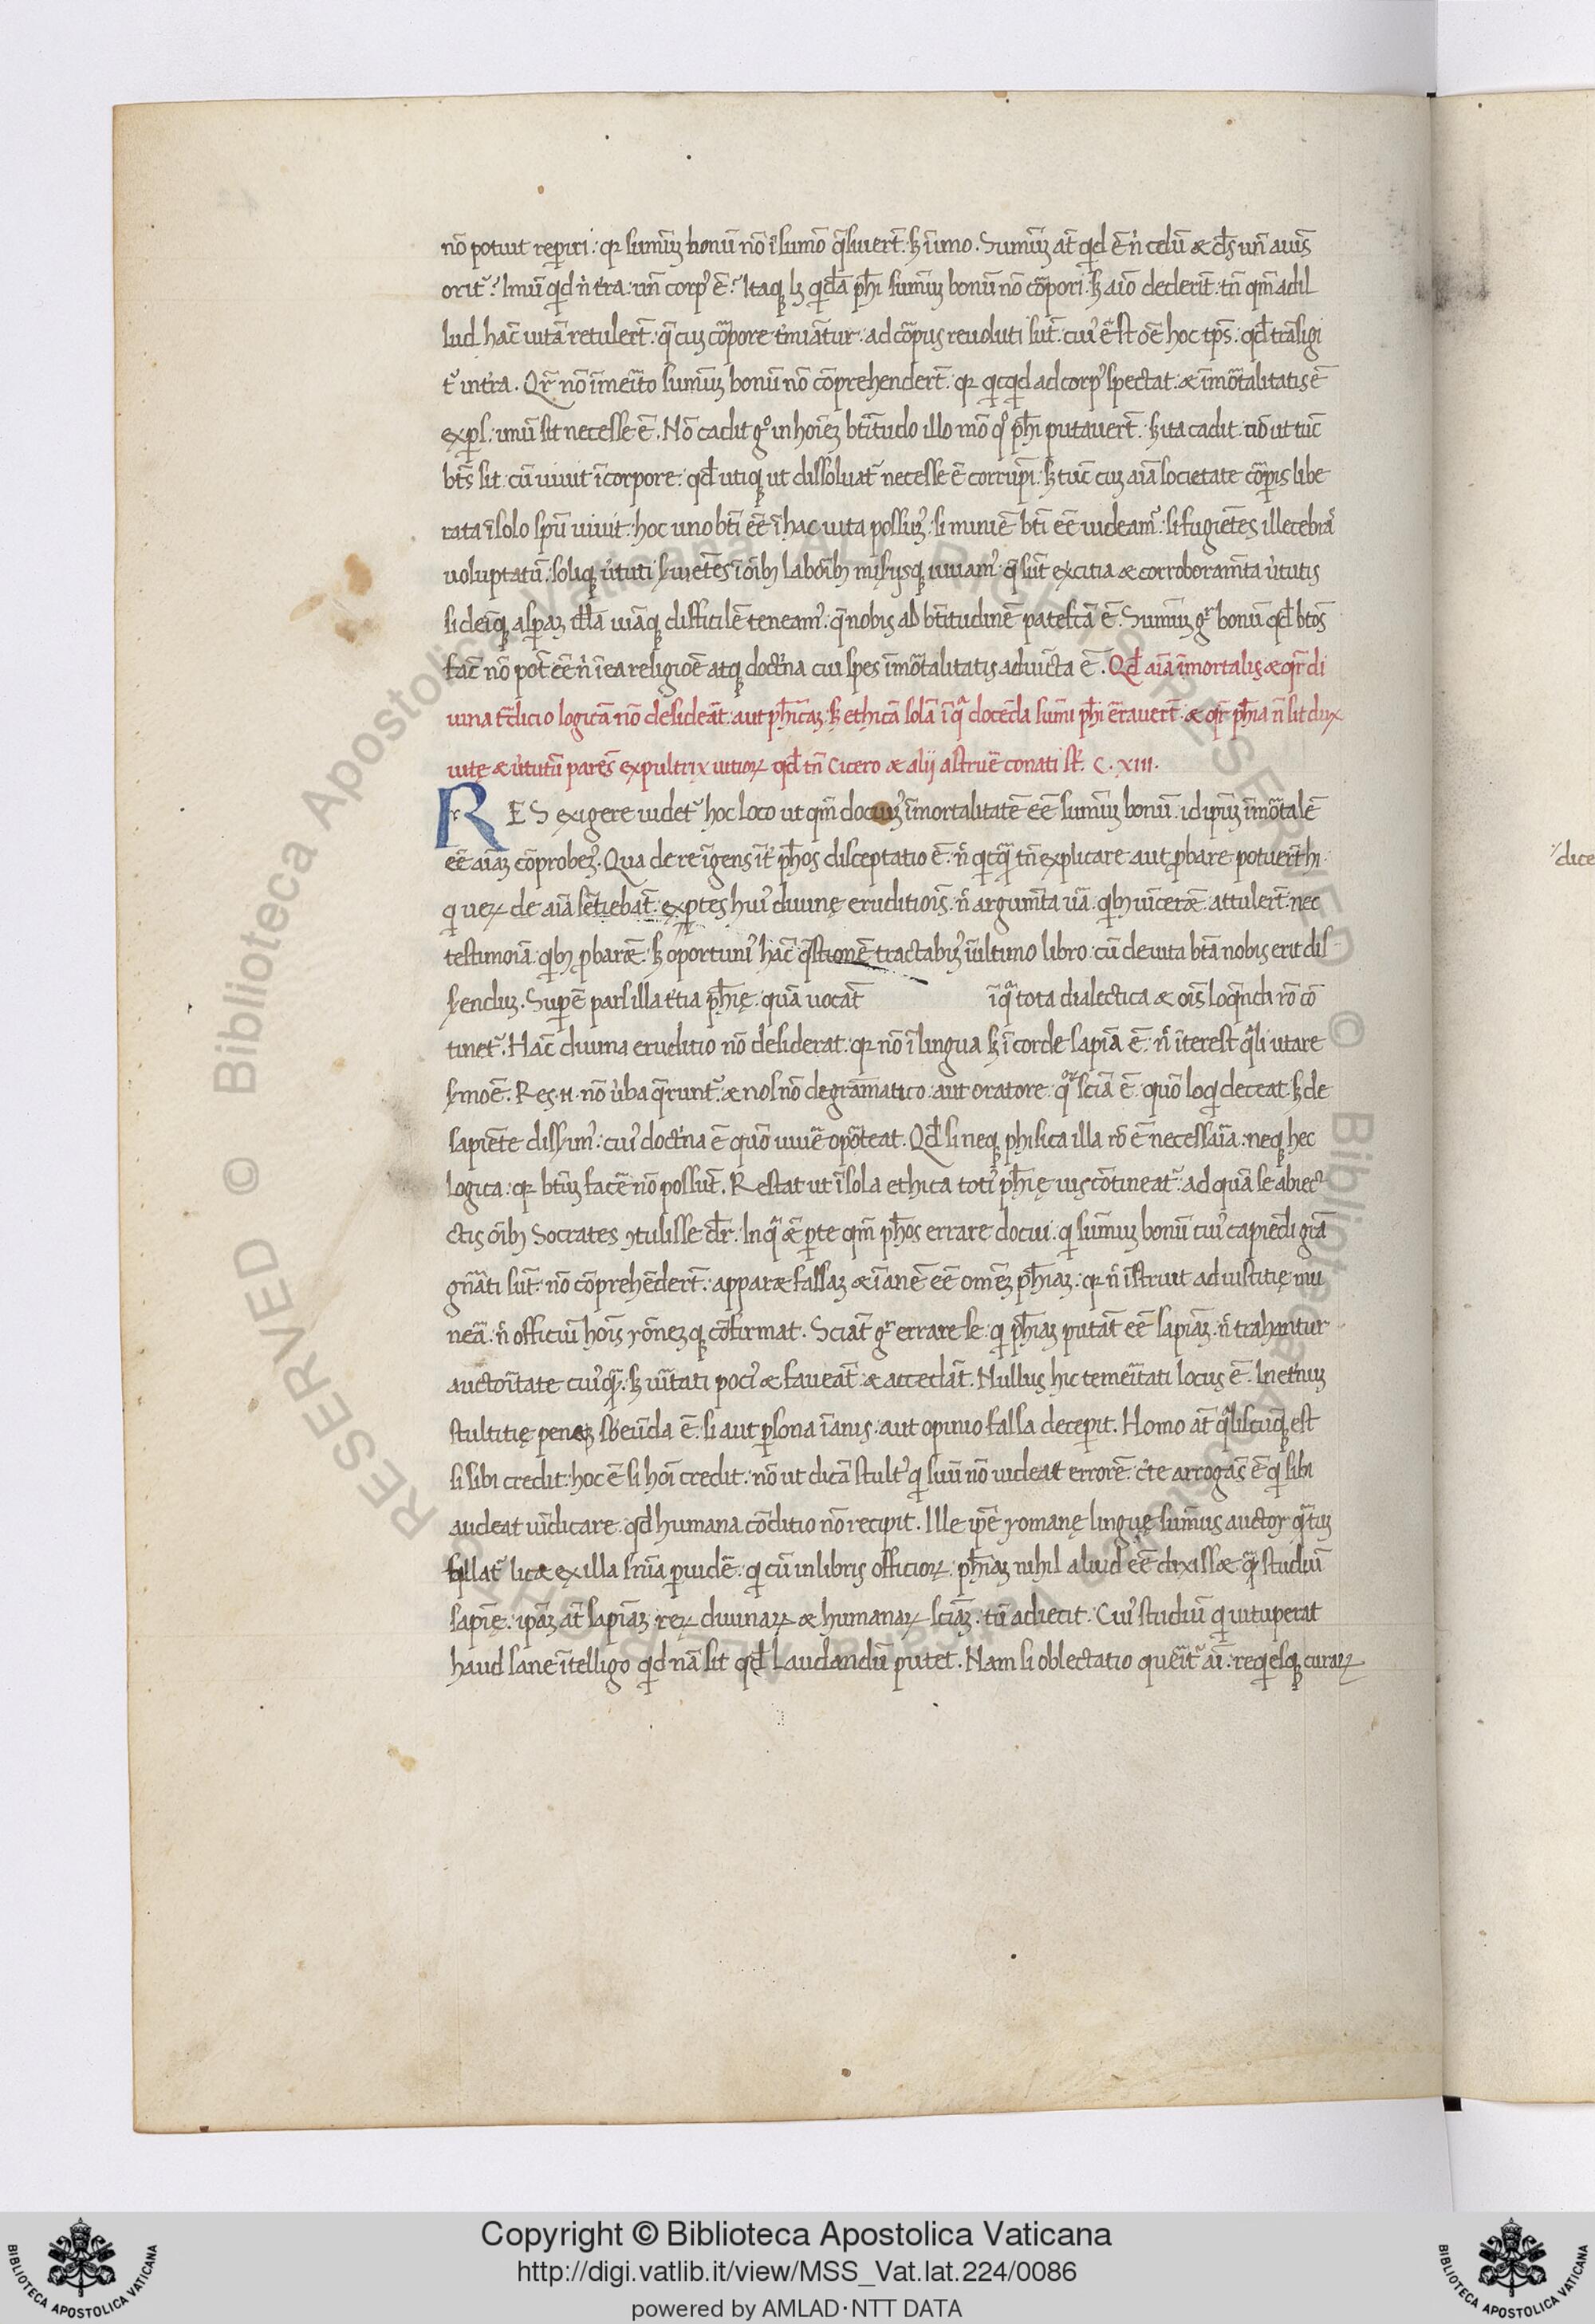 nō potuit reperiri. qr sumūz bonū nō ī sumo q̄siuert̄. sꝫ īmo. Sumūz at̄ qid ē nͥ celū æ dſ̄ un̄ auis
orit᷑? Imū qid nͥ tra. un̄ corpꝰ ē? Itaqꝫ lꝫ qidā ph̄i sumūz bonū nō corpori. sꝫ aīo dederīt. tn̄ qm̄ ad il
lud hac̄ uitā retulert̄. q̄ cuꝫ corpore tͥmiātur. ad corpus reuoluti sūt. cuiꝰ ē st oē hoc tps̄. qd̄ trāsigi
t᷑ in tͥra. Qr̄ nō īmeito sumūz bonū nō cōprehendert̄. qr qicqid ad corpꝰ spectat. æ īmortalitatis ē
exꝑs. imū sit necesse ē. Nō cadit gͦ in hoīeꝫ btītudo illo mō qͦ ph̄i putauert̄. sꝫ ita cadit. nō ut tūc
bts̄ sit. cū uiuit ī corpore. qd̄ utiqꝫ ut dissoluat᷑ necesse ē corrūpi. sꝫ tūc cuꝫ aīa societate corꝑis libe
rata ī solo spū uiuit. hoc uno btī eē ī hac uita possuꝰ. si minīe btī eē uideam᷑. si fugiētes illecebra
uoluptatū. soliqꝫ utͥtuti suiētes ī oībꝫ laboribꝫ misꝫisqꝫ uiuamꝰ. q̄ sūt excitia æ corroboramēta utͥtutis
si deīqꝫ asꝑaꝫ illā uiāqꝫ difficilē teneamꝰ. q̄ nobis ad btītudinē patefcā ē. Sumūꝫ gͦ bonū qd̄ btos̄
fac̄ nō pot̄ eē nͥ ī ea religiōe atqꝫ doctͥna cui spes īmortalitatis adiūcta ē. Qd̄ aīa īmortalis æ qr̄ di
uina tͣdicio logicā nō desideāt. aut phͥcaꝫ. sꝫ ethicā solā ī qͣ docēda sumi ph̄i ērauert̄. æ qr̄ ph̄ia n̄ sit dux
uitę æ utͥtutū parēs expultrix uitioꝝ qd̄ tn̄ Cicero æ alij astruē conati sr̄. C. XIII.
RES exigere uidet᷑ hoc loco ut qm̄ docuiꝰ īmortalitatē eē sumūꝫ bonū. id ip̄uꝫ īmortalē
eē aīaꝫ cōprobeꝰ. Qua de re īgens īt ph̄os disceptatio ē. nͨ qicqͣ tn̄ explicare aut ꝓbare potuert̄ hi
qi ueꝝ de aīa sētiebāt. exꝑtes huiꝰ diuinę eruditiōis. nͨ argumēta uā. qibꝫ uīceræ. attulert̄. nec
testimoīa qibꝫ ꝓbaræ. sꝫ oportuniꝰ hac̄ qs̄tionē tractabīꝰ ī ultimo libro. cū de uita btā nobis erit dis
senduꝫ. Suꝑē pars illa tͥtia ph̄ię. quā uocāt ī qͣ tota dialectica æ oīs loqͥndi rō cō
tinet᷑. Hac̄ diuina eruditio nō desiderat. qr nō ī lingua sꝫ ī corde sapīa ē. nͨ īterest qͣli utare
smoē. Res .n. nō uͥba q̄runt᷑. æ nos nō de gramatico. aut oratore. qͦꝝ scīa ē. quō loqi deceat. sꝫ de
sapiēte dissimꝰ. cuiꝰ doctͥna ē quō uiuē oporteat. Qd̄ si neqꝫ phisica illa rō ē necessaīa. neqꝫ hec
logica. qr btūꝫ facē nō possūt. Restat ut ī sola ethica totiꝰ ph̄ię uis cōtineat᷑. ad quā se abiec
ctis oībꝫ Socrates ꝯtulisse dr̄. In qͣ æ ꝑte qm̄ ph̄os errare docui. qi sumūꝫ bonū cuiꝰ capiēdi grā
gn̄ati sūt. nō cōprehēdert̄. apparæ falsaꝫ æ īanē eē omēꝫ ph̄iaꝫ. qr nͨ īstruit ad iustitię mu
nea. nͨ officiū hoīs rōneꝫqꝫ cōfirmat. Sciāt gͦ errare se. qi ph̄iaꝫ putāt eē sapiaꝫ. nͨ trahantur
auctoritate cuiꝰqͣꝫ. sꝫ uītati pociꝰ æ faueāt. æ accedāt. Nullus hic temeitati locus ē. In etͥnuꝫ
stultitię pena sb̄eūda ē. si aut ꝑsona īanis. aut opinio falsa deceperit. Homo at̄ qͣliscuqꝫ est
si sibi credit. hoc ē si hoī credit. nō ut dicā stultꝰ qi suū nō uideat errorē. cͥte arrogās ē qi sibi
audeat uīdicare. qd humana cōditio nō recipit. Ille ip̄e romanę linguę summus auctor qͣtuꝫ
fallat᷑ licæ ex illa snīa ꝑuidē. qi cū in libris officioꝝ. ph̄iaꝫ nihil aliud eē dixissæ qͣꝫ studiū
sapīę. ip̄aꝫ at̄ sapiaꝫ. reꝝ diuinaꝝ æ humanaꝝ scīaꝫ. tū adiecit. Cuiꝰ studiū qi uituperat
haud sane ītelligo qid nā sit qd̄ laudandū putet. Nam si oblectatio queit᷑ aī. reqiesqꝫ curaꝝ
dice
Copyright © Biblioteca Apostolica Vaticana
http://digi.vatlib.it/view/MSS_Vat.lat.224/0086
powered by AMLAD·NTT DATA
BIBLIOTECA APOSTOLICA VATICANA
BIBLIOTECA APOSTOLICA VATICANA